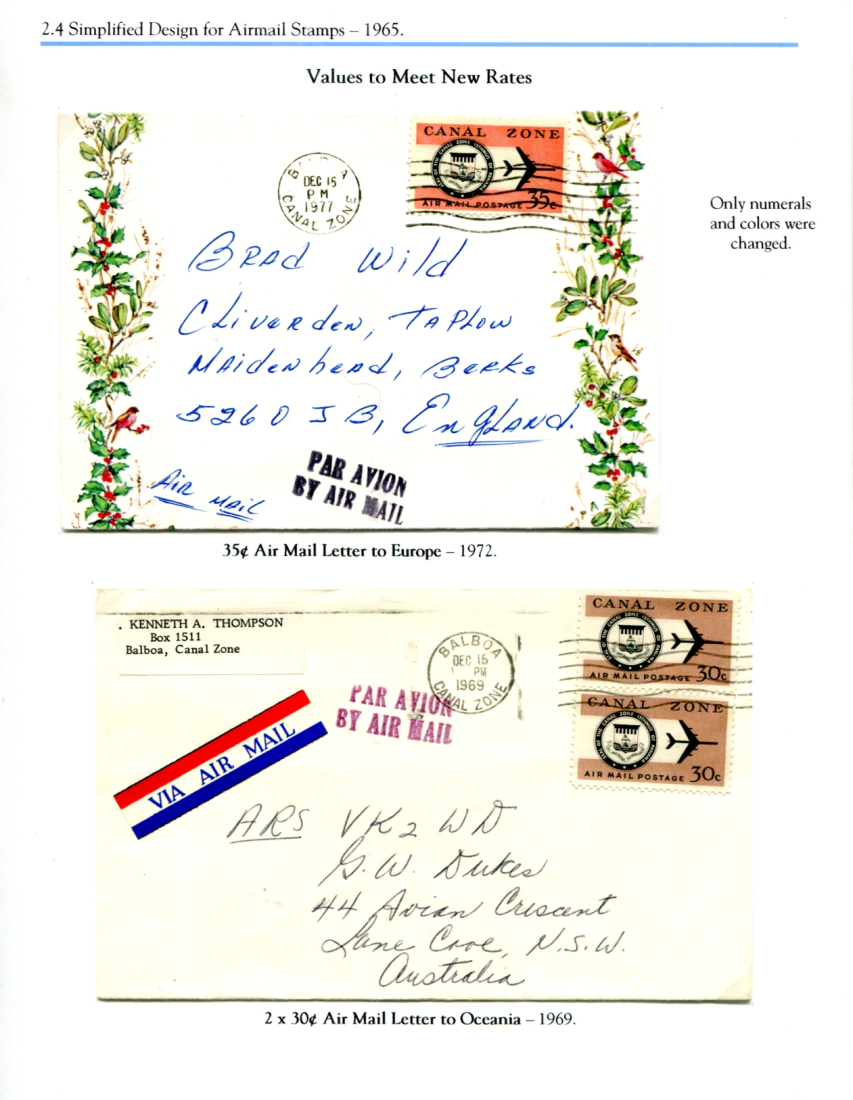 2.4 Simplified Design for Airmail Stamps – 1965.
Values to Meet New Rates
CANAL ZONE
AIR MAIL POSTAGE 35c
DEC 15
PM
1977
CANAL ZONE
Only numerals
and colors were
changed.
Brad Wild
Cliverden, Taplow
Maidenhead, Berks
5260 JB, England.
Air Mail
PAR AVION
BY AIR MAIL
35¢ Air Mail Letter to Europe – 1972.
. KENNETH A. THOMPSON
Box 1511
Balboa, Canal Zone
BALBOA
DEC 15
PM
1969
CANAL ZONE
CANAL ZONE
AIR MAIL POSTAGE 30c
CANAL ZONE
AIR MAIL POSTAGE 30c
PAR AVION
BY AIR MAIL
VIA AIR MAIL
ARS VK2WD
G.W. Dukes
44 Avian Crescent
Lane Cove, N.S.W.
Australia
2 x 30¢ Air Mail Letter to Oceania – 1969.